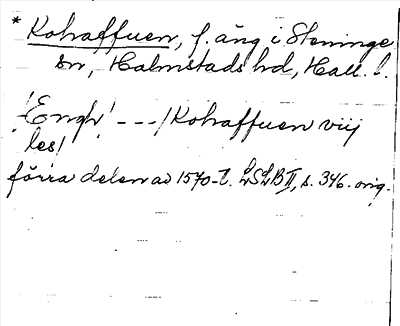 * Kohaffuen, f. äng i Steninge
sn, Halmstads hd, Hall. l.
'Engh' - - -/ Kohaffuen viij
les/
förra delen av 1570-t. LSLB II, s. 346. orig.